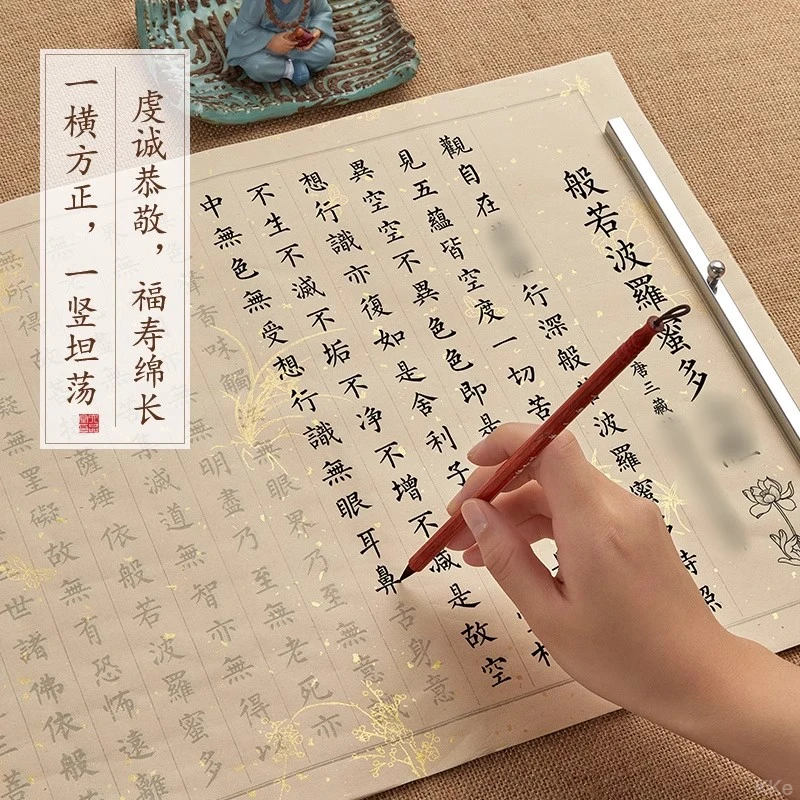 虔诚恭敬，福寿绵长
一横方正，一竖坦荡
般若波羅蜜多
唐三藏
觀自在
行深般
波羅蜜
時照
見五蘊皆空度一切苦
異空空不異色色即是
想行識亦復如是舍利子
不生不滅不垢不净不增不減是故空
中無色無受想行識無眼耳鼻舌身意
香味觸
無眼界乃至無意識
無明盡乃至無老死亦
滅道無智亦無得以
所得故
薩埵依般若波羅蜜多
無罣礙故無有恐怖遠離
世諸佛依般